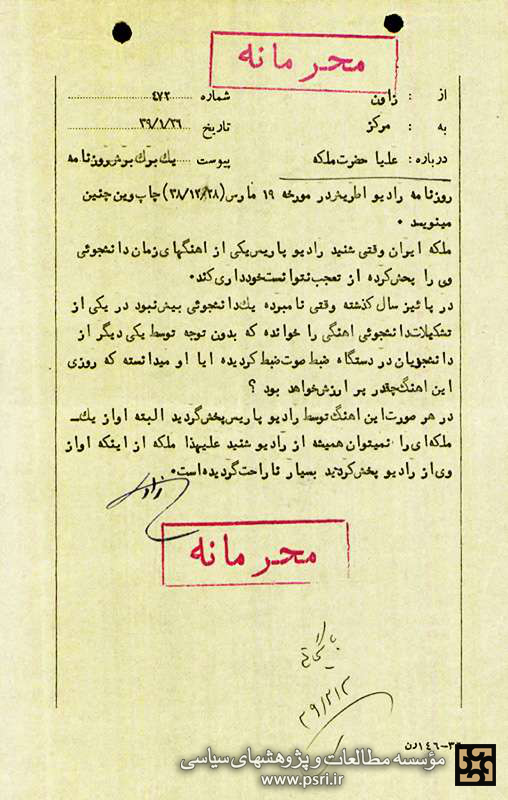 محرمانه
از : زاون شماره ۴۷۲
به : مرکز تاریخ ۳۹/۱/۲۶
درباره : علیا حضرت ملکه پیوست یک برگ برش روزنامه
روزنامه رادیو اطریش در مورخه ۱۹ مارس (۳۸/۱۲/۲۸) چاپ وین چنین
مینویسد ۰
ملکه ایران وقتی شنید رادیو پاریس یکی از اهنگهای زمان دانشجوئی
وی را پخش کرده از تعجب نتوانست خودداری کند ۰
در پائیز سال گذشته وقتی نامبرده یک دانشجوئی بیش نبود در یکی از
تشکیلات دانشجوئی اهنگی را خوانده که بدون توجه توسط یکی دیگر از
دانشجویان در دستگاه ضبط صوت ضبط گردیده ایا او میدانسته که روزی
این اهنگ چقدر پر ارزش خواهد بود ؟
در هر صورت این اهنگ توسط رادیو پاریس پخش گردید البته اواز یک ـ
ملکه ای را نمیتوان همیشه از رادیو شنید علیهذا ملکه از اینکه اواز
وی از رادیو پخش گردید بسیار ناراحت گردیده است ۰
محرمانه
بایگانی
۳۹/۲/۲
مؤسسه مطالعات و پژوهشهای سیاسی
www.psri.ir